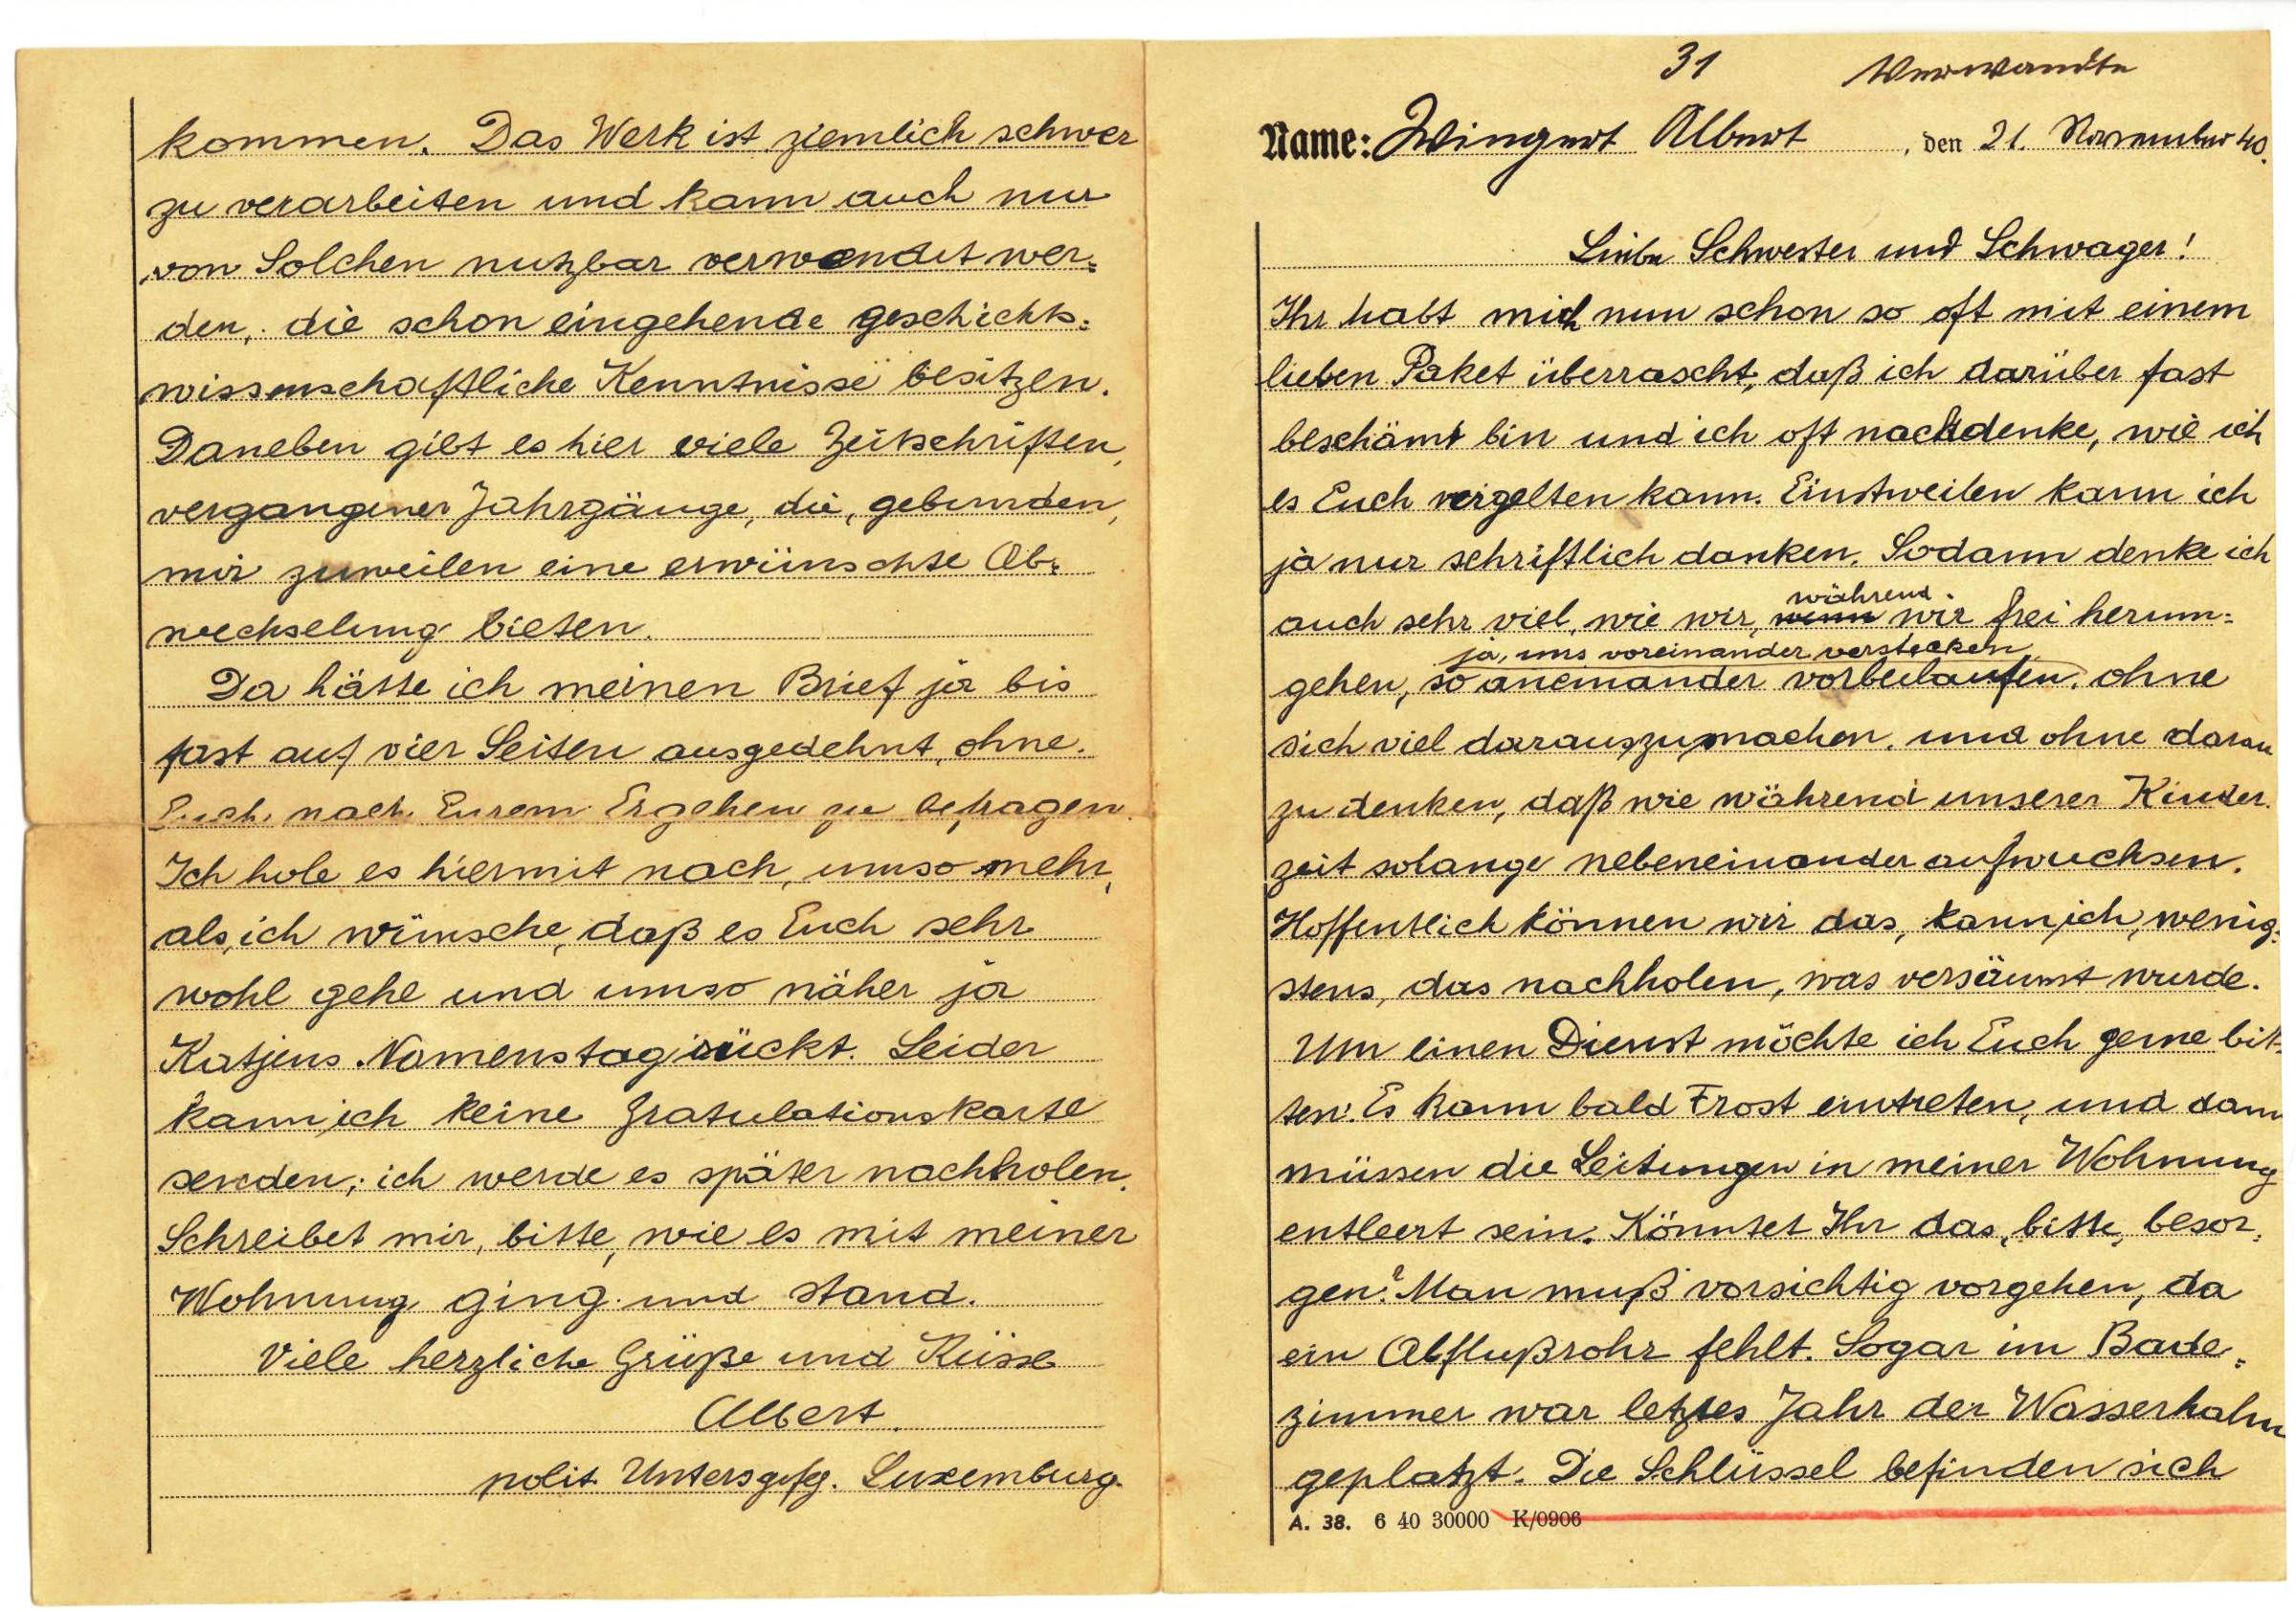 kommen. Das Werk ist ziemlich schwer
zu verarbeiten und kann auch nur
von Solchen nutzbar verwendet wer=
den, die schon eingehende geschichts=
wissenschaftliche Kenntnisse besitzen.
Daneben gibt es hier viele Zeitschriften,
vergangener Jahrgänge, die, gebunden,
mir zuweilen eine erwünschte Ab=
wechselung bieten.
Da hätte ich meinen Brief ja bis
fast auf vier Seiten ausgedehnt, ohne
Euch nach Eurem Ergehen zu befragen.
Ich hole es hiermit nach, umso mehr,
als ich wünsche, daß es Euch sehr
wohl gehe und umso näher ja
Katjens Namenstag rückt. Leider
kann ich keine Gratulationskarte
senden; ich werde es später nachholen.
Schreibet mir, bitte, wie es mit meiner
Wohnung ging und stand.
Viele herzliche Grüße und Küsse
Albert.
polit. Untersgefg. Luxemburg.
31 Verwandte
Name: Wingert Albert, den 21. November 40.
Liebe Schwester und Schwager!
Ihr habt mich nun schon so oft mit einem
lieben Paket überrascht, daß ich darüber fast
beschämt bin und ich oft nachdenke, wie ich
es Euch vergelten kann. Einstweilen kann ich
ja nur schriftlich danken. Sodann denke ich
auch sehr viel, wie wir, wenn während wir frei herum=
ja, uns voreinander verstecken,
gehen, so aneinander vorbeilaufen, ohne
sich viel darauszumachen, und ohne daran
zu denken, daß wie während unserer Kinder=
zeit solange nebeneinander aufwuchsen.
Hoffentlich können wir das, kann ich, wenig=
stens, das nachholen, was versäumt wurde.
Um einen Dienst möchte ich Euch gerne bit=
ten: Es kann bald Frost eintreten, und dann
müssen die Leitungen in meiner Wohnung
entleert sein. Könntet Ihr das, bitte, besor=
gen? Man muß vorsichtig vorgehen, da
ein Abflußrohr fehlt. Sogar im Bade=
zimmer war letztes Jahr der Wasserhahn
geplatzt. Die Schlüssel befinden sich
A. 38. 6 40 30000 K/0906